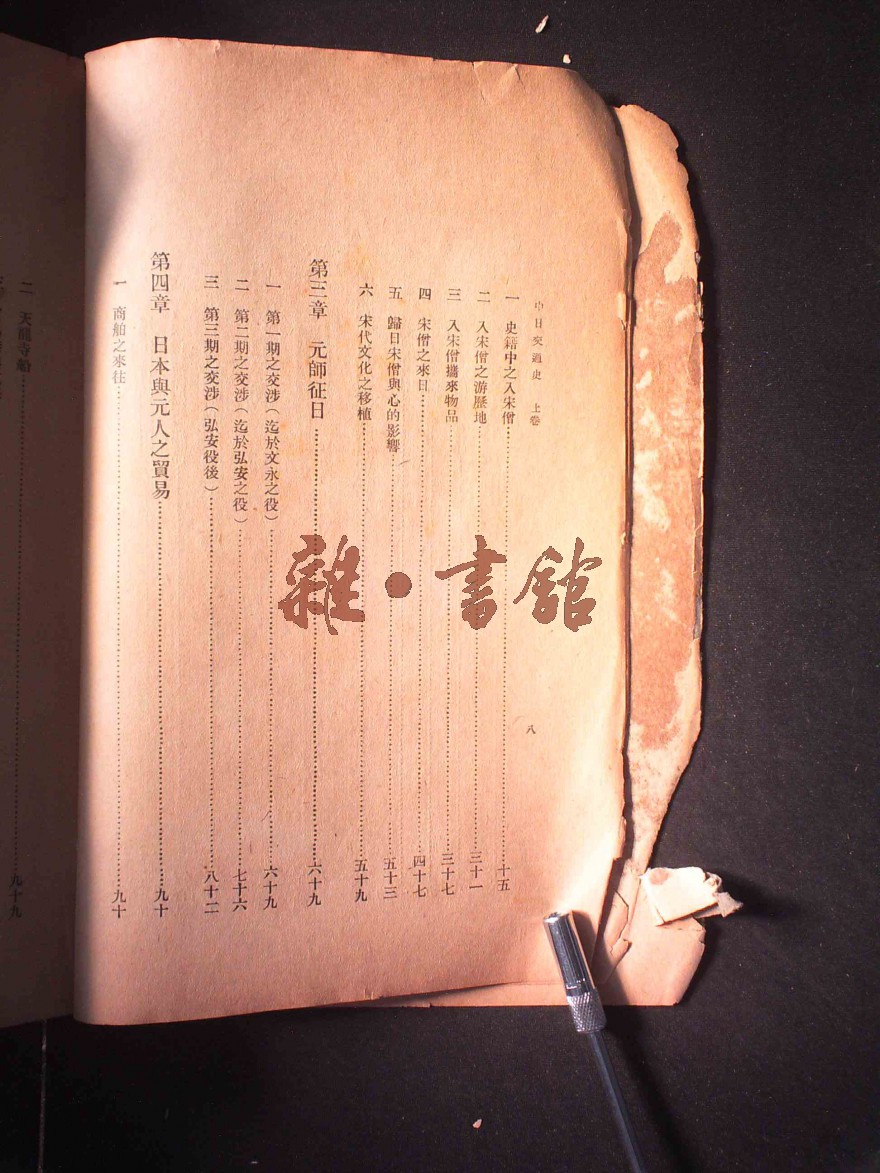 中日交通史 上卷
八
一 史籍中之入宋僧 十五
二 入宋僧之游歷地 三十一
三 入宋僧攜來物品 三十七
四 宋僧之來日 四十七
五 歸日宋僧與心的影響 五十三
六 宋代文化之移植 五十九
第三章 元師征日 六十九
一 第一期之交涉(迄於文永之役) 六十九
二 第二期之交涉(迄於弘安之役) 七十六
三 第三期之交涉(弘安役後) 八十二
第四章 日本與元人之貿易 九十
一 商舶之來往 九十
二 天龍寺船 九十九
雜·書館